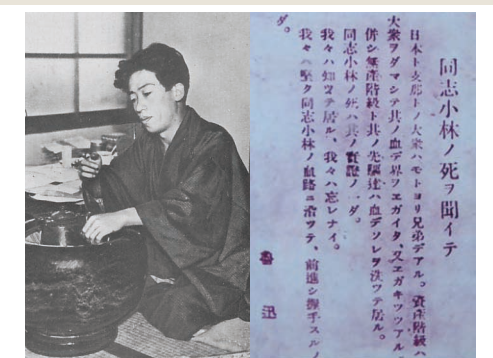 同志小林ノ死ヲ聞イテ
日本ト支那トノ大衆ハモトヨリ兄弟デアル。資産階級ハ
大衆ヲダマシテ其ノ血デ界ヲエガイタ、又エガキツツアル
併シ無産階級ト其ノ先駆達ハ血デソレヲ洗ツテ居ル。
同志小林ノ死ハ其ノ實證ノ一ダ。
我々ハ知ツテ居ル、我々ハ忘レナイ。
我々ハ堅ク同志小林ノ血路ニ沿ツテ、前進シ握手スルノ
ダ。
魯迅